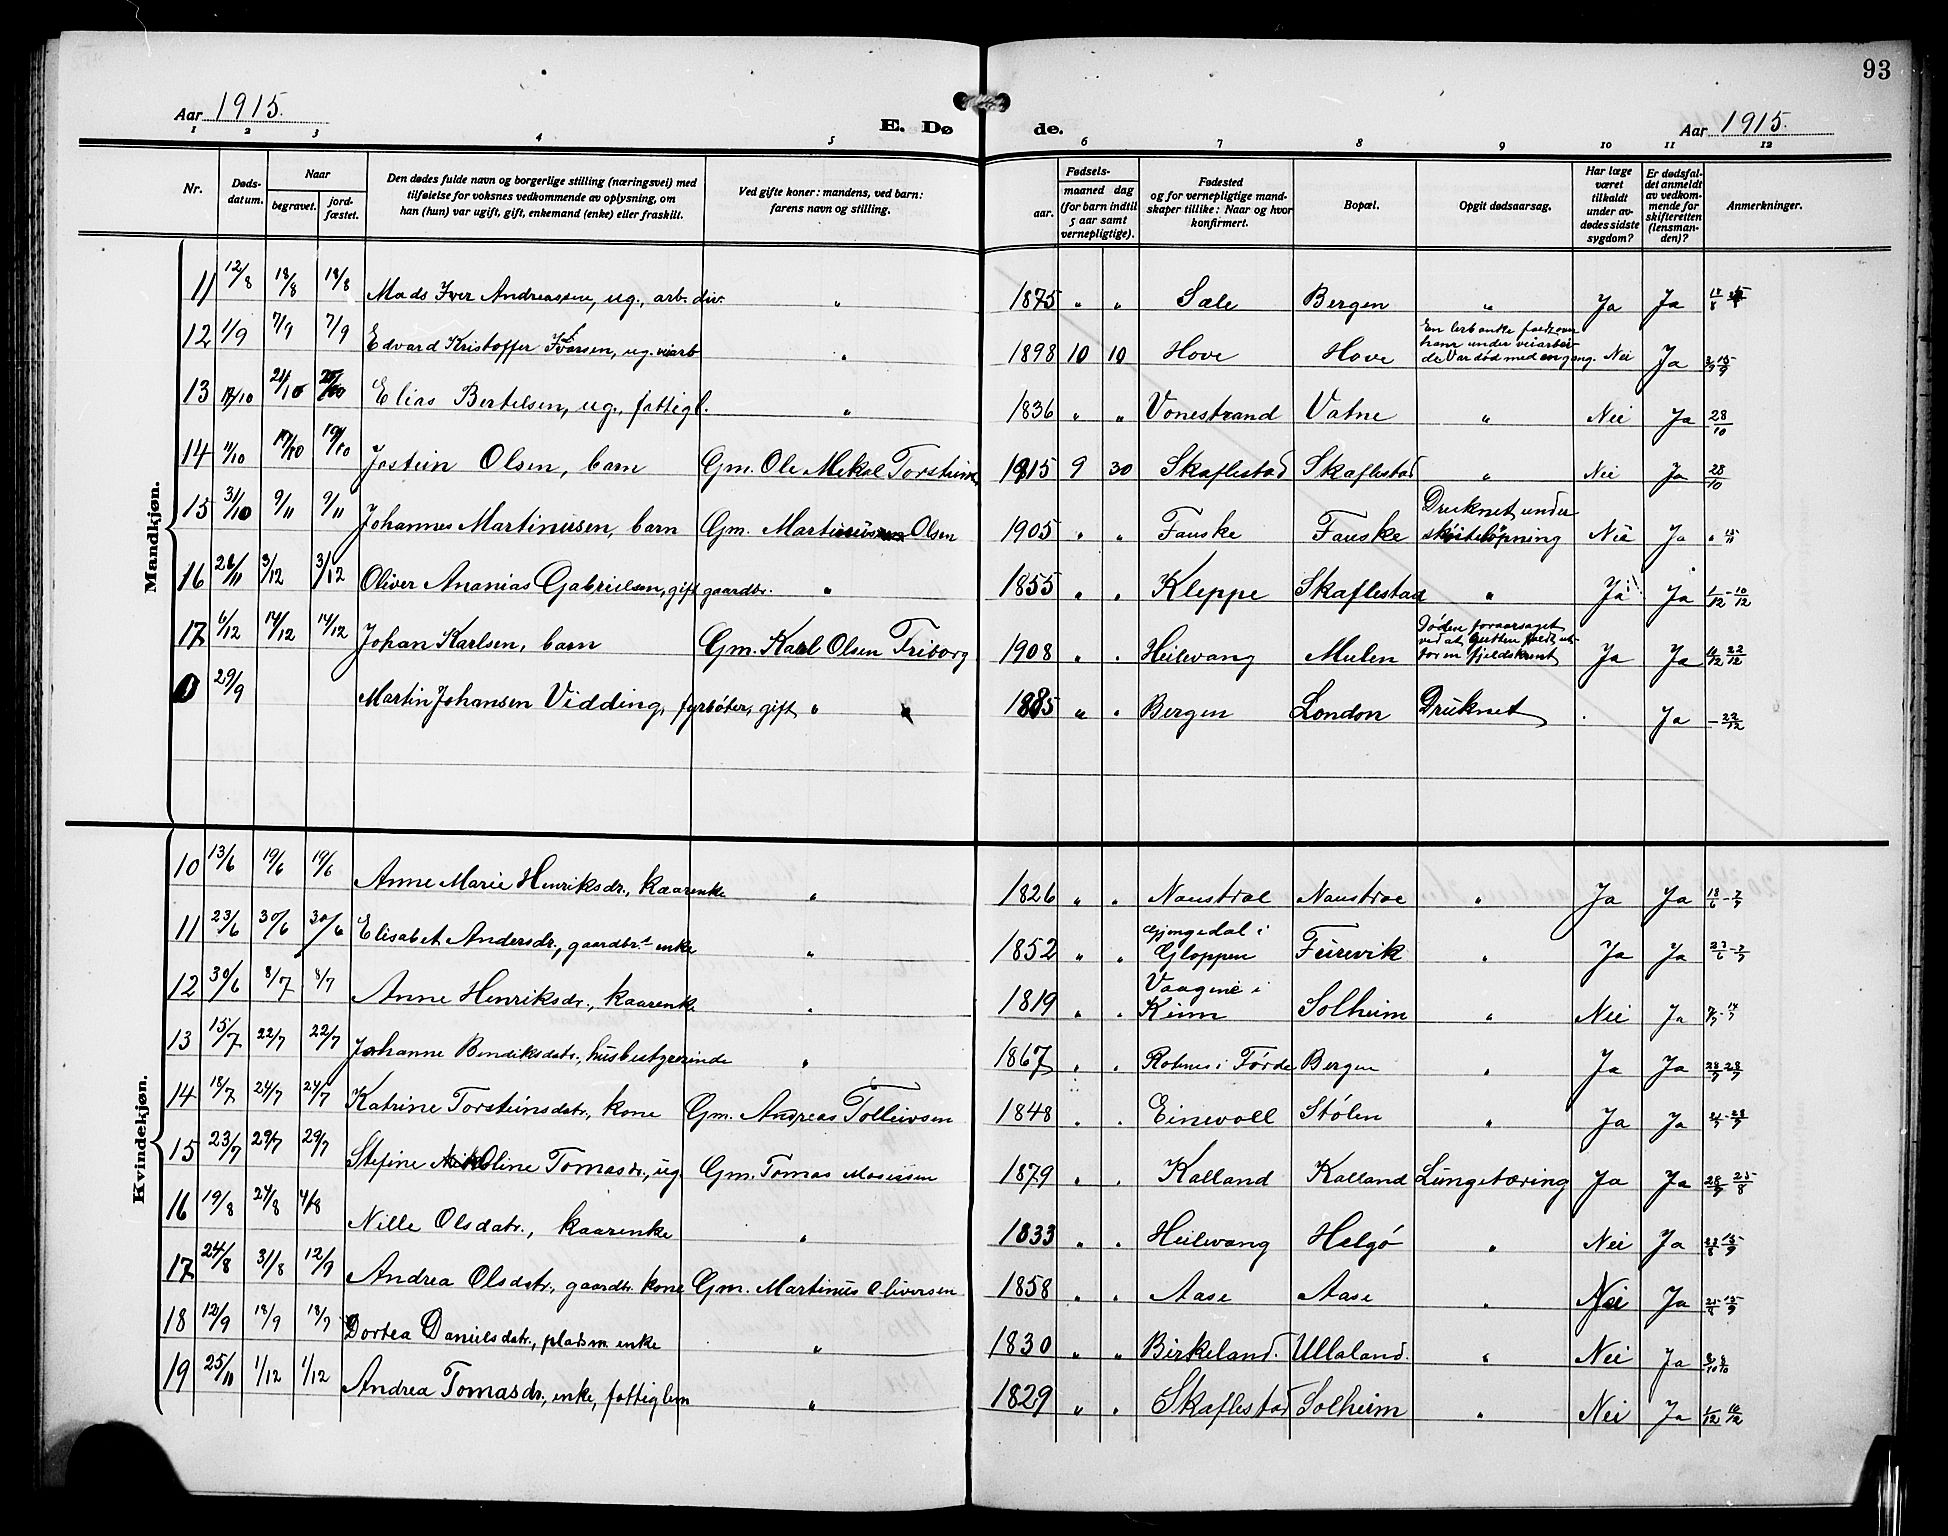 93
Aar 1915.
E. Døde.
Aar 1915.
1 2 3 4 5 6 7 8 9 10 11 12
Nr.
Døds-
datum.
Naar
begravet.
jord-
fæstet.
Den dødes fulde navn og borgerlige stilling (næringsvei) med
tilføielse for voksnes vedkommende av oplysning, om
han (hun) var ugift, gift, enkemand (enke) eller fraskilt.
Ved gifte koner: mandens, ved barn:
farens navn og stilling.
Fødsels-
aar.
maaned dag
(for barn indtil
5 aar samt
vernepligtige).
Fødested
og for vernepligtige mand-
skaper tillike: Naar og hvor
konfirmert.
Bopæl.
Opgit dødsaarsag.
Har læge
været
tilkaldt
under av-
dødes sidste
sygdom?
Er dødsfal-
det anmeldt
av vedkom-
mende for
skifteretten
(lensman-
den)?
Anmerkninger.
Mandkjøn.
11 12/8 18/8 18/8 Mads Iver Andreassen, ug., arb. div. " 1875 " " Sæle Bergen " Ja Ja
12 1/9 7/9 7/9 Edvard Kristoffer Ivarsen, ug. veiarb " 1898 10 10 Hove Hove
En lerbanke faldt over
hans under veiarbei-
de Var død med en gang. Nei Ja
13 24/10 Elias Bertelsen, ug., fattigl. " 1836 " " Vonestrand Vatne " Nei Ja 28/10
14 11/10 19/10 19/10 Jostein Olsen, barn Gm. Ole Mikal Torsteins 1915 9 30 Skaflestad Skaflestad " Nei Ja 28/10
15 31/10 9/11 9/11 Johannes Martinusen, barn Gm. Martinus Olsen 1905 " " Fauske Fauske
Druknet under
skøiteløpning Nei Ja
16 26/11 3/12 3/12 Oliver Ananias Gabrielsen, gift gaardbr. " 1855 " " Kleppe Skaflestad " Ja Ja 1/12 - 10/12
17 6/12 14/12 14/12 Johan Karlsen, barn Gm. Karl Olsen Friborg 1908 " " Heilevang Mulen
Døden foraarsaget
ved at gutten faldt ut-
for en fjeldskrent Ja Ja 22/12
0 29/9 Martin Johansen Vidding, fyrbøter, gift " 1885 " " Bergen London Druknet . Ja - 22/12
Kvindekjøn.
10 13/6 19/6 19/6 Anne Marie Henriksdr., kaarenke " 1826 " " Naustdal Naustdal " Ja Ja 18/6 - 2/7
11 23/6 30/6 30/6 Elisabet Andersdr., gaardbr. enke " 1852 " "
Gjengedal i
Gloppen Furevik " Ja Ja
12 30/6 8/7 8/7 Anne Henriksdr., kaarenke " 1819 " "
Vaagene i
Kinn Solheim " Nei Ja
13 15/7 22/7 22/7 Johanne Bendiksdatr., husbestyrerinde " 1867 " " Rotnes i Førde Bergen " Ja Ja 28/7 28/7
14 18/7 24/7 24/7 Katrine Torsteinsdatr., kone Gm. Andreas Tolleivsen 1848 " " Einevoll Stølen " Ja Ja
15 23/7 29/7 29/7 Stefine Oline Tomasdr., ug. Gm. Tomas Mosessen 1879 " " Kalland Kalland Lungetæring Ja Ja 28/7 25/8
16 19/8 24/8 Nille Olsdatr., kaarenke " 1833 " " Heilevang Helgø " Nei Ja 15/9
17 24/8 31/8 12/9 Andrea Olsdatr., gaardbr. kone Gm. Martinus Oliversen 1858 " " Aase Aase " Nei Ja 15/9
18 12/9 18/9 18/9 Dortea Danielsdatr., pladsm. enke " 1830 " " Birkeland. Ullaland. " Nei Ja
19 25/11 1/12 1/12 Andrea Tomasdr., enke, fattiglem " 1829 " " Skaflestad Solheim " Nei Ja